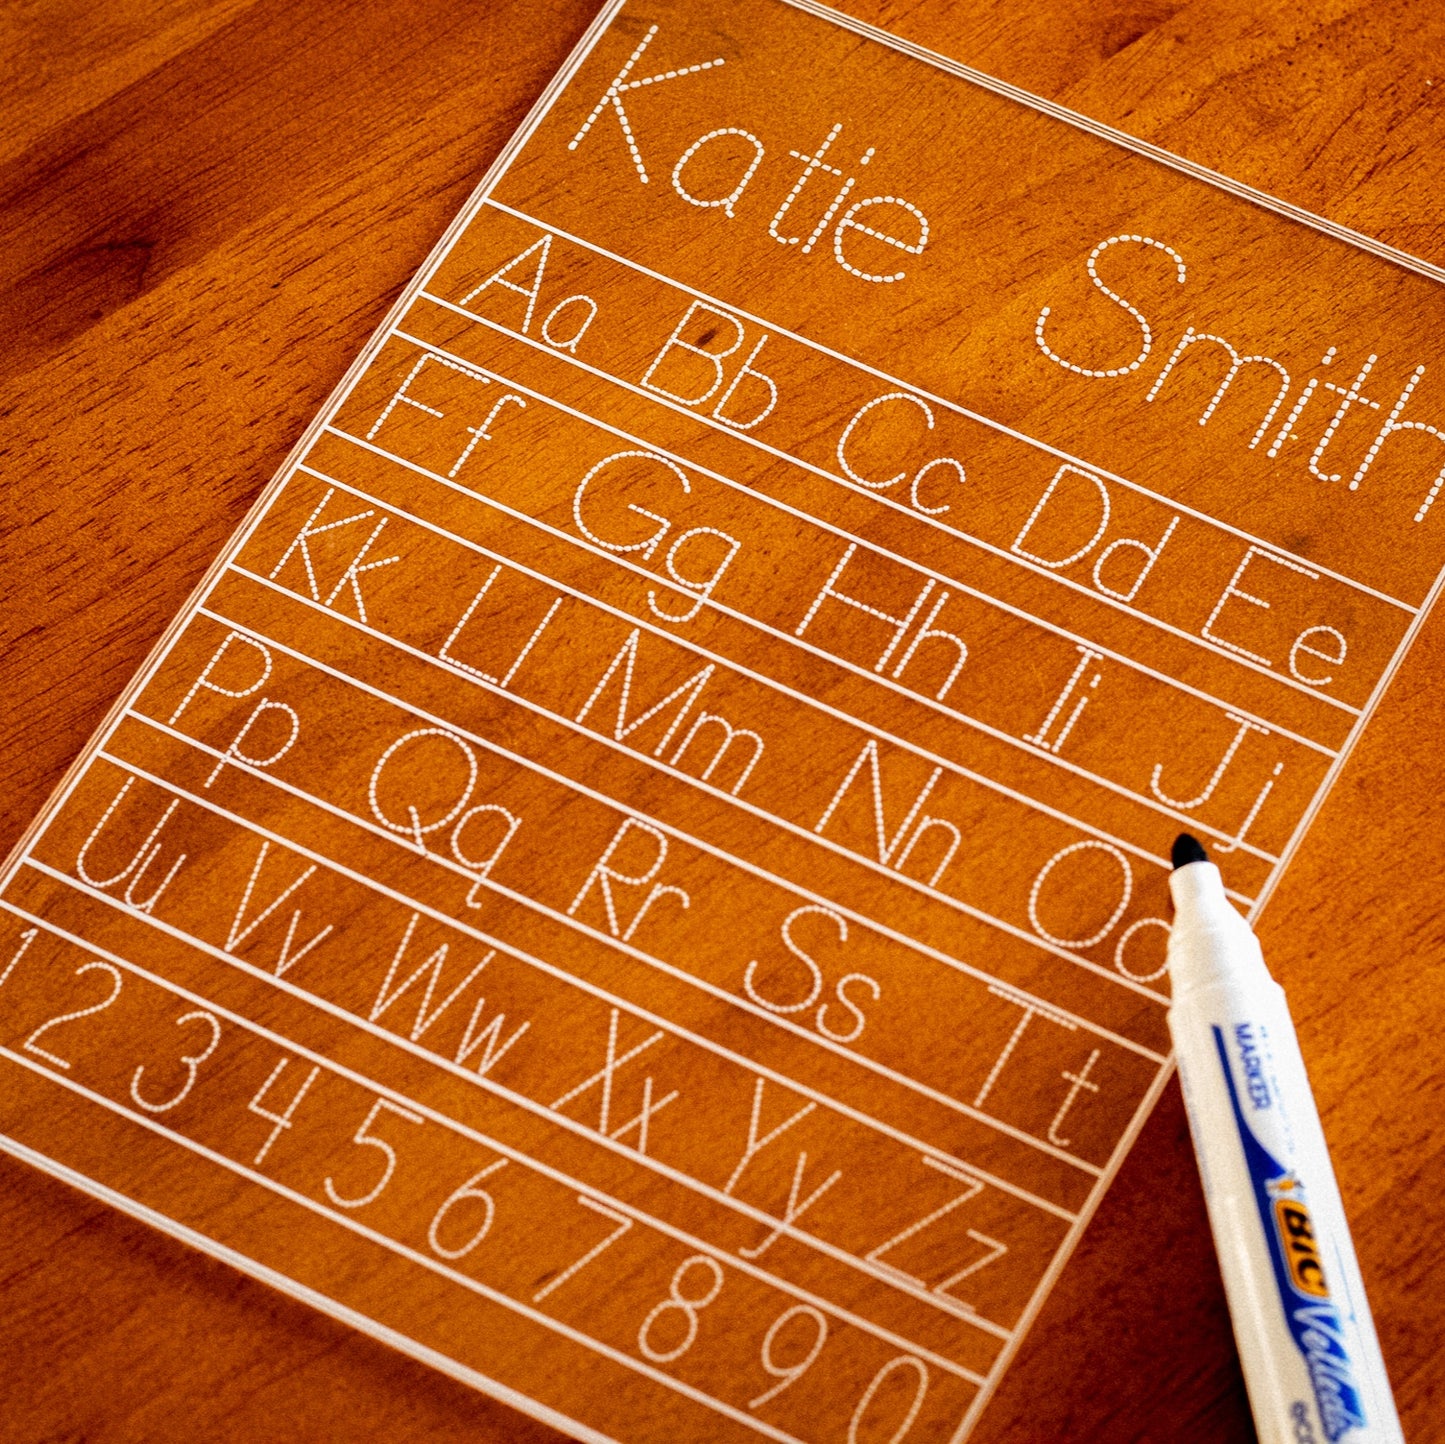 Katie Smith
Aa Bb Cc Dd Ee
Ff Gg Hh Ii Jj
Kk Ll Mm Nn Oo
Pp Qq Rr Ss Tt
Uu Vv Ww Xx Yy Zz
1 2 3 4 5 6 7 8 9 0
MARKER
BIC Velleda
eco